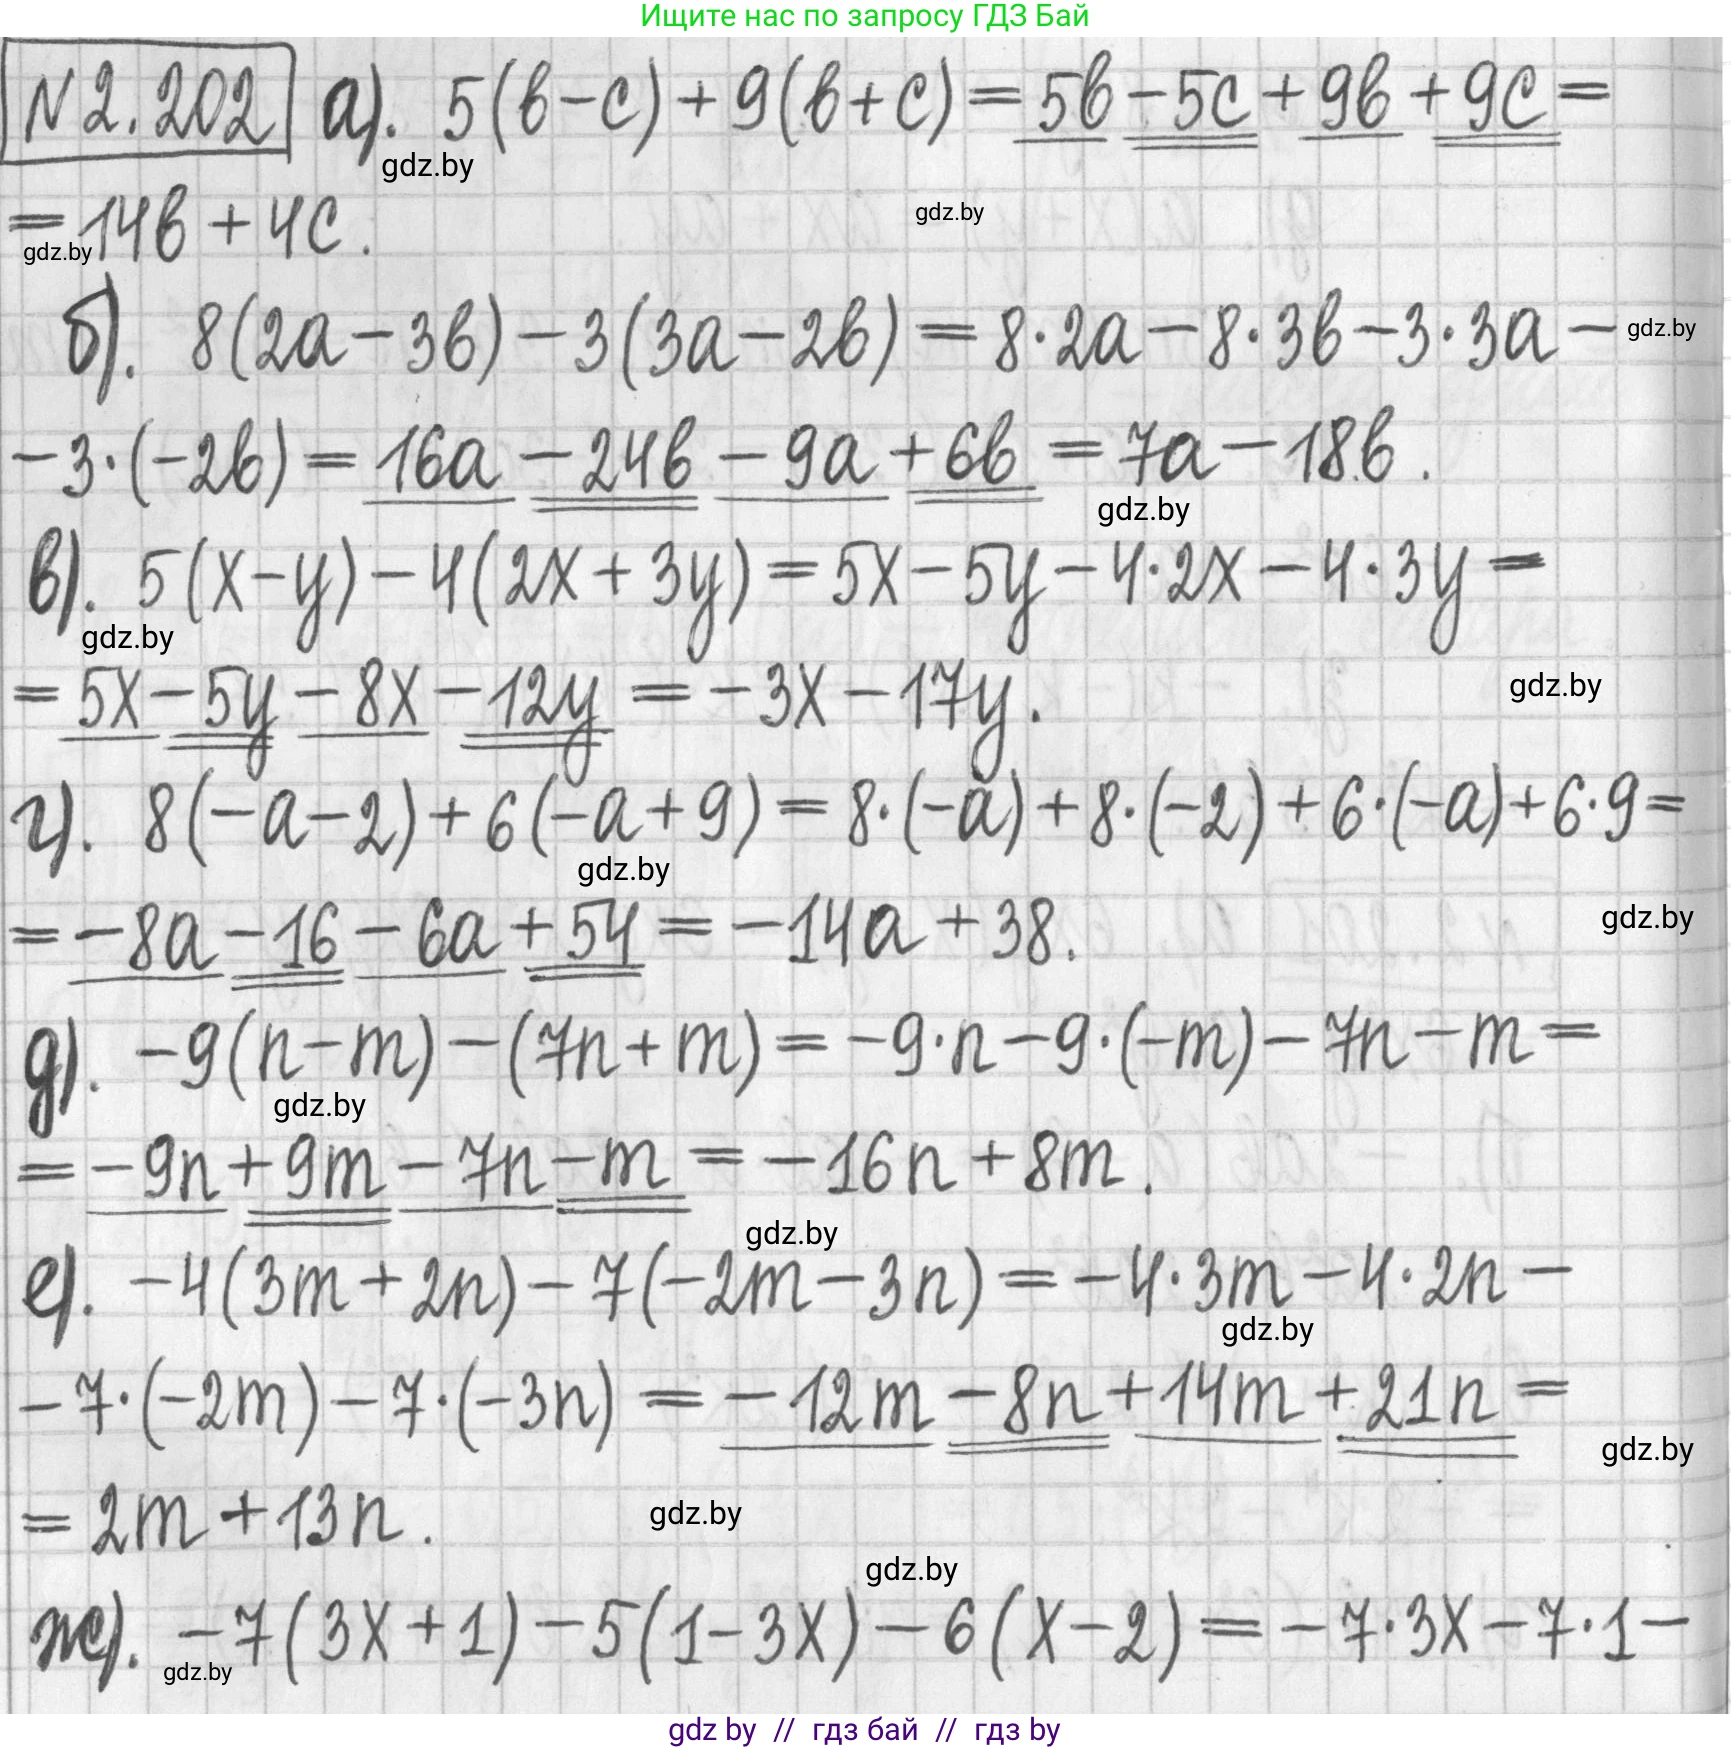 Ищите нас по запросу ГДЗ Бай
N2.202 а). 5(в-с)+9(в+с)=5в-5с+9в+9с=
gdz.by
=14в+4с.
gdz.by
gdz.by
б). 8(2а-3в)-3(3а-2в)=8·2а-8·3в-3·3а-
gdz.by
-3·(-2в)=16а-24в-9а+6в=7а-18в.
gdz.by
в). 5(х-у)-4(2х+3у)=5х-5у-4·2х-4·3у=
gdz.by
=5х-5у-8х-12у=-3х-17у.
gdz.by
г). 8(-а-2)+6(-а+9)=8·(-а)+8·(-2)+6·(-а)+6·9=
gdz.by
=-8а-16-6а+54=-14а+38.
gdz.by
д). -9(n-m)-(7n+m)=-9·n-9·(-m)-7n-m=
gdz.by
=-9n+9m-7n-m=-16n+8m.
gdz.by
е). -4(3m+2n)-7(-2m-3n)=-4·3m-4·2n-
gdz.by
-7·(-2m)-7·(-3n)=-12m-8n+14m+21n=
gdz.by
=2m+13n.
gdz.by
gdz.by
ж). -7(3х+1)-5(1-3х)-6(х-2)=-7·3х-7·1-
gdz.by
gdz by // гдз бай // гдз by